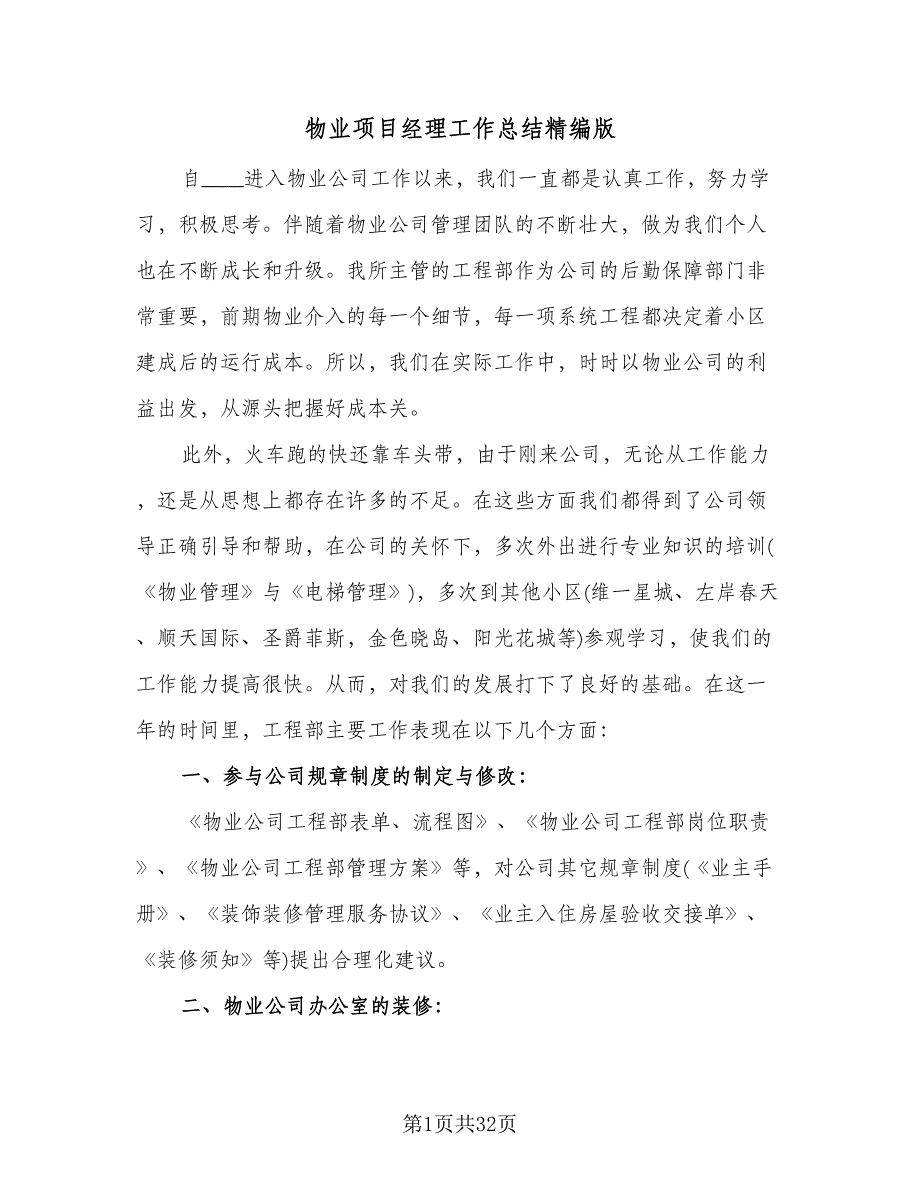 物业项目经理工作总结精编版
自____进入物业公司工作以来，我们一直都是认真工作，努力学
习，积极思考。伴随着物业公司管理团队的不断壮大，做为我们个人
也在不断成长和升级。我所主管的工程部作为公司的后勤保障部门非
常重要，前期物业介入的每一个细节，每一项系统工程都决定着小区
建成后的运行成本。所以，我们在实际工作中，时时以物业公司的利
益出发，从源头把握好成本关。
此外，火车跑的快还靠车头带，由于刚来公司，无论从工作能力
，还是从思想上都存在许多的不足。在这些方面我们都得到了公司领
导正确引导和帮助，在公司的关怀下，多次外出进行专业知识的培训(
《物业管理》与《电梯管理》)，多次到其他小区(维一星城、左岸春天
、顺天国际、圣爵菲斯，金色晓岛、阳光花城等)参观学习，使我们的
工作能力提高很快。从而，对我们的发展打下了良好的基础。在这一
年的时间里，工程部主要工作表现在以下几个方面：
一、参与公司规章制度的制定与修改：
《物业公司工程部表单、流程图》、《物业公司工程部岗位职责
》、《物业公司工程部管理方案》等，对公司其它规章制度(《业主手
册》、《装饰装修管理服务协议》、《业主入住房屋验收交接单》、
《装修须知》等)提出合理化建议。
二、物业公司办公室的装修：
第1页共32页